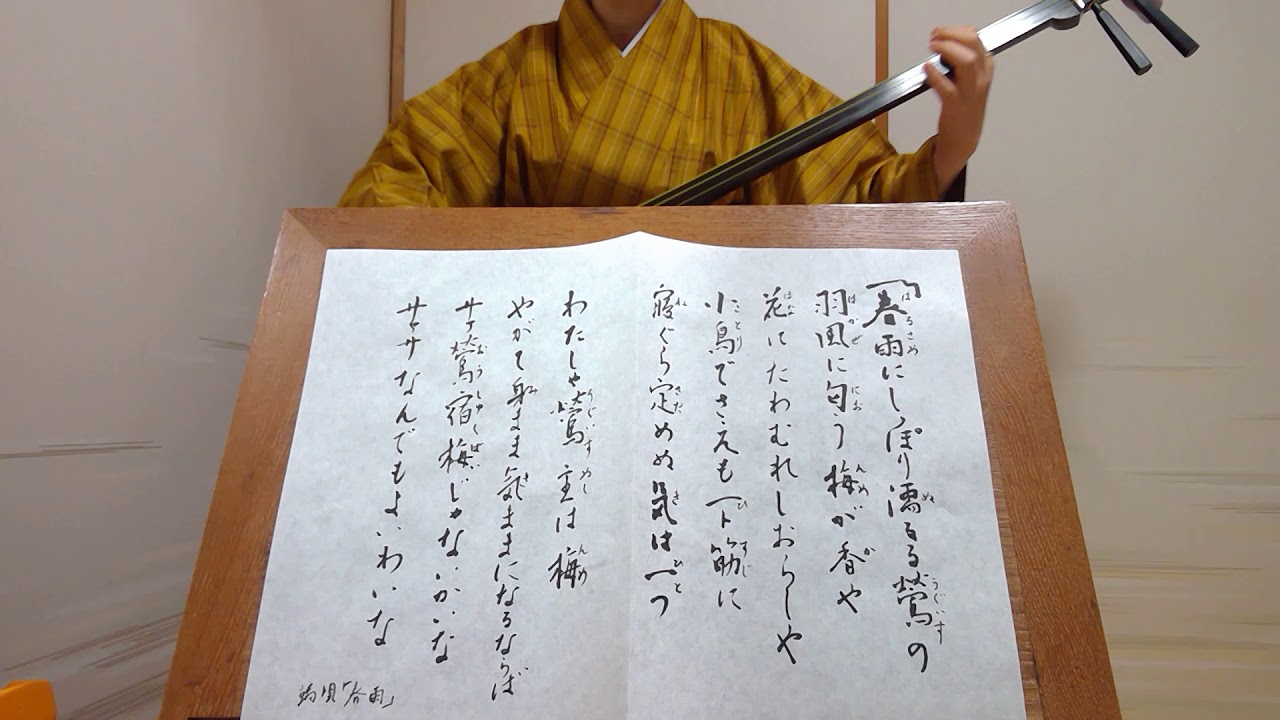 春雨にしっぽり濡るる鶯の
羽風に匂う梅が香や
花にたわむれしおらしや
小鳥でさえも一ト筋に
寝ぐら定めぬ気は一つ
わたしゃ鶯 主は梅
やがて身まま気ままになるならば
サァ鶯宿梅じゃないかいな
サァサなんでもよいわいな
端唄「春雨」